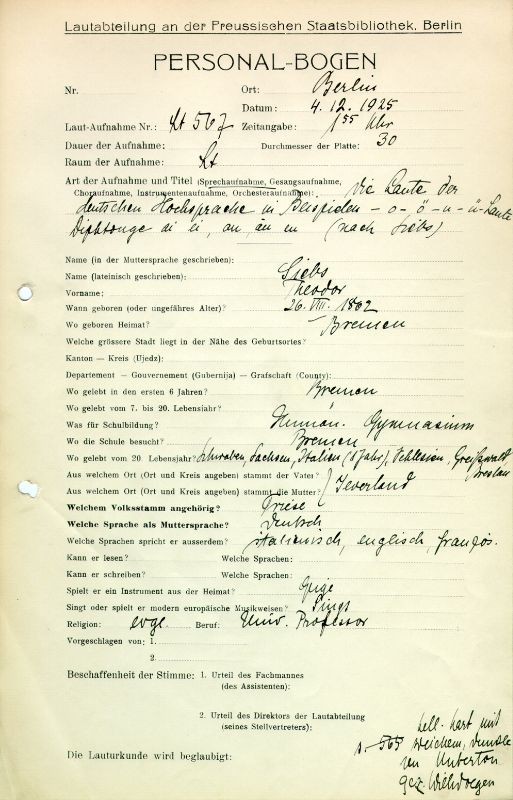 Lautabteilung an der Preussischen Staatsbibliothek, Berlin
PERSONAL-BOGEN
Nr. Ort: Berlin
Datum: 4. 12. 1925
Laut-Aufnahme Nr.: Lt 567 Zeitangabe: 1⁵⁵ Uhr
Dauer der Aufnahme: Durchmesser der Platte: 30
Raum der Aufnahme: Lt
Art der Aufnahme und Titel (Sprechaufnahme, Gesangsaufnahme,
Choraufnahme, Instrumentenaufnahme, Orchesteraufnahme): Die Laute der
deutschen Hochsprache in Beispielen - o - ö - u - ü - Laute
Diphtonge ai ei, au, äu eu (nach Siebs)
Name (in der Muttersprache geschrieben):
Name (lateinisch geschrieben): Siebs
Vorname: Theodor
Wann geboren (oder ungefähres Alter)? 26. VIII. 1862
Wo geboren Heimat? Bremen
Welche grössere Stadt liegt in der Nähe des Geburtsortes?
Kanton — Kreis (Ujedz):
Departement — Gouvernement (Gubernija) — Grafschaft (County):
Wo gelebt in den ersten 6 Jahren? Bremen
Wo gelebt vom 7. bis 20. Lebensjahr?
Was für Schulbildung? Human. Gymnasium
Wo die Schule besucht? Bremen
Wo gelebt vom 20. Lebensjahr? Schwaben, Sachsen, Italien (1 Jahr), Schlesien, Greifswald
Breslau
Aus welchem Ort (Ort und Kreis angeben) stammt der Vater?
Aus welchem Ort (Ort und Kreis angeben) stammt die Mutter? Jeverland
Welchem Volksstamm angehörig? Friese
Welche Sprache als Muttersprache? Deutsch
Welche Sprachen spricht er ausserdem? italienisch, englisch, französ.
Kann er lesen? Welche Sprachen:
Kann er schreiben? Welche Sprachen:
Spielt er ein Instrument aus der Heimat? Geige
Singt oder spielt er modern europäische Musikweisen? Singt
Religion: evgl. Beruf: Univ. Professor
Vorgeschlagen von: 1.
2.
Beschaffenheit der Stimme: 1. Urteil des Fachmannes
(des Assistenten):
2. Urteil des Direktors der Lautabteilung
(seines Stellvertreters):
hell. hart mit
s. 565 weichem, dunkle
Unterton
Die Lauturkunde wird beglaubigt: gez. Wilh. Doegen